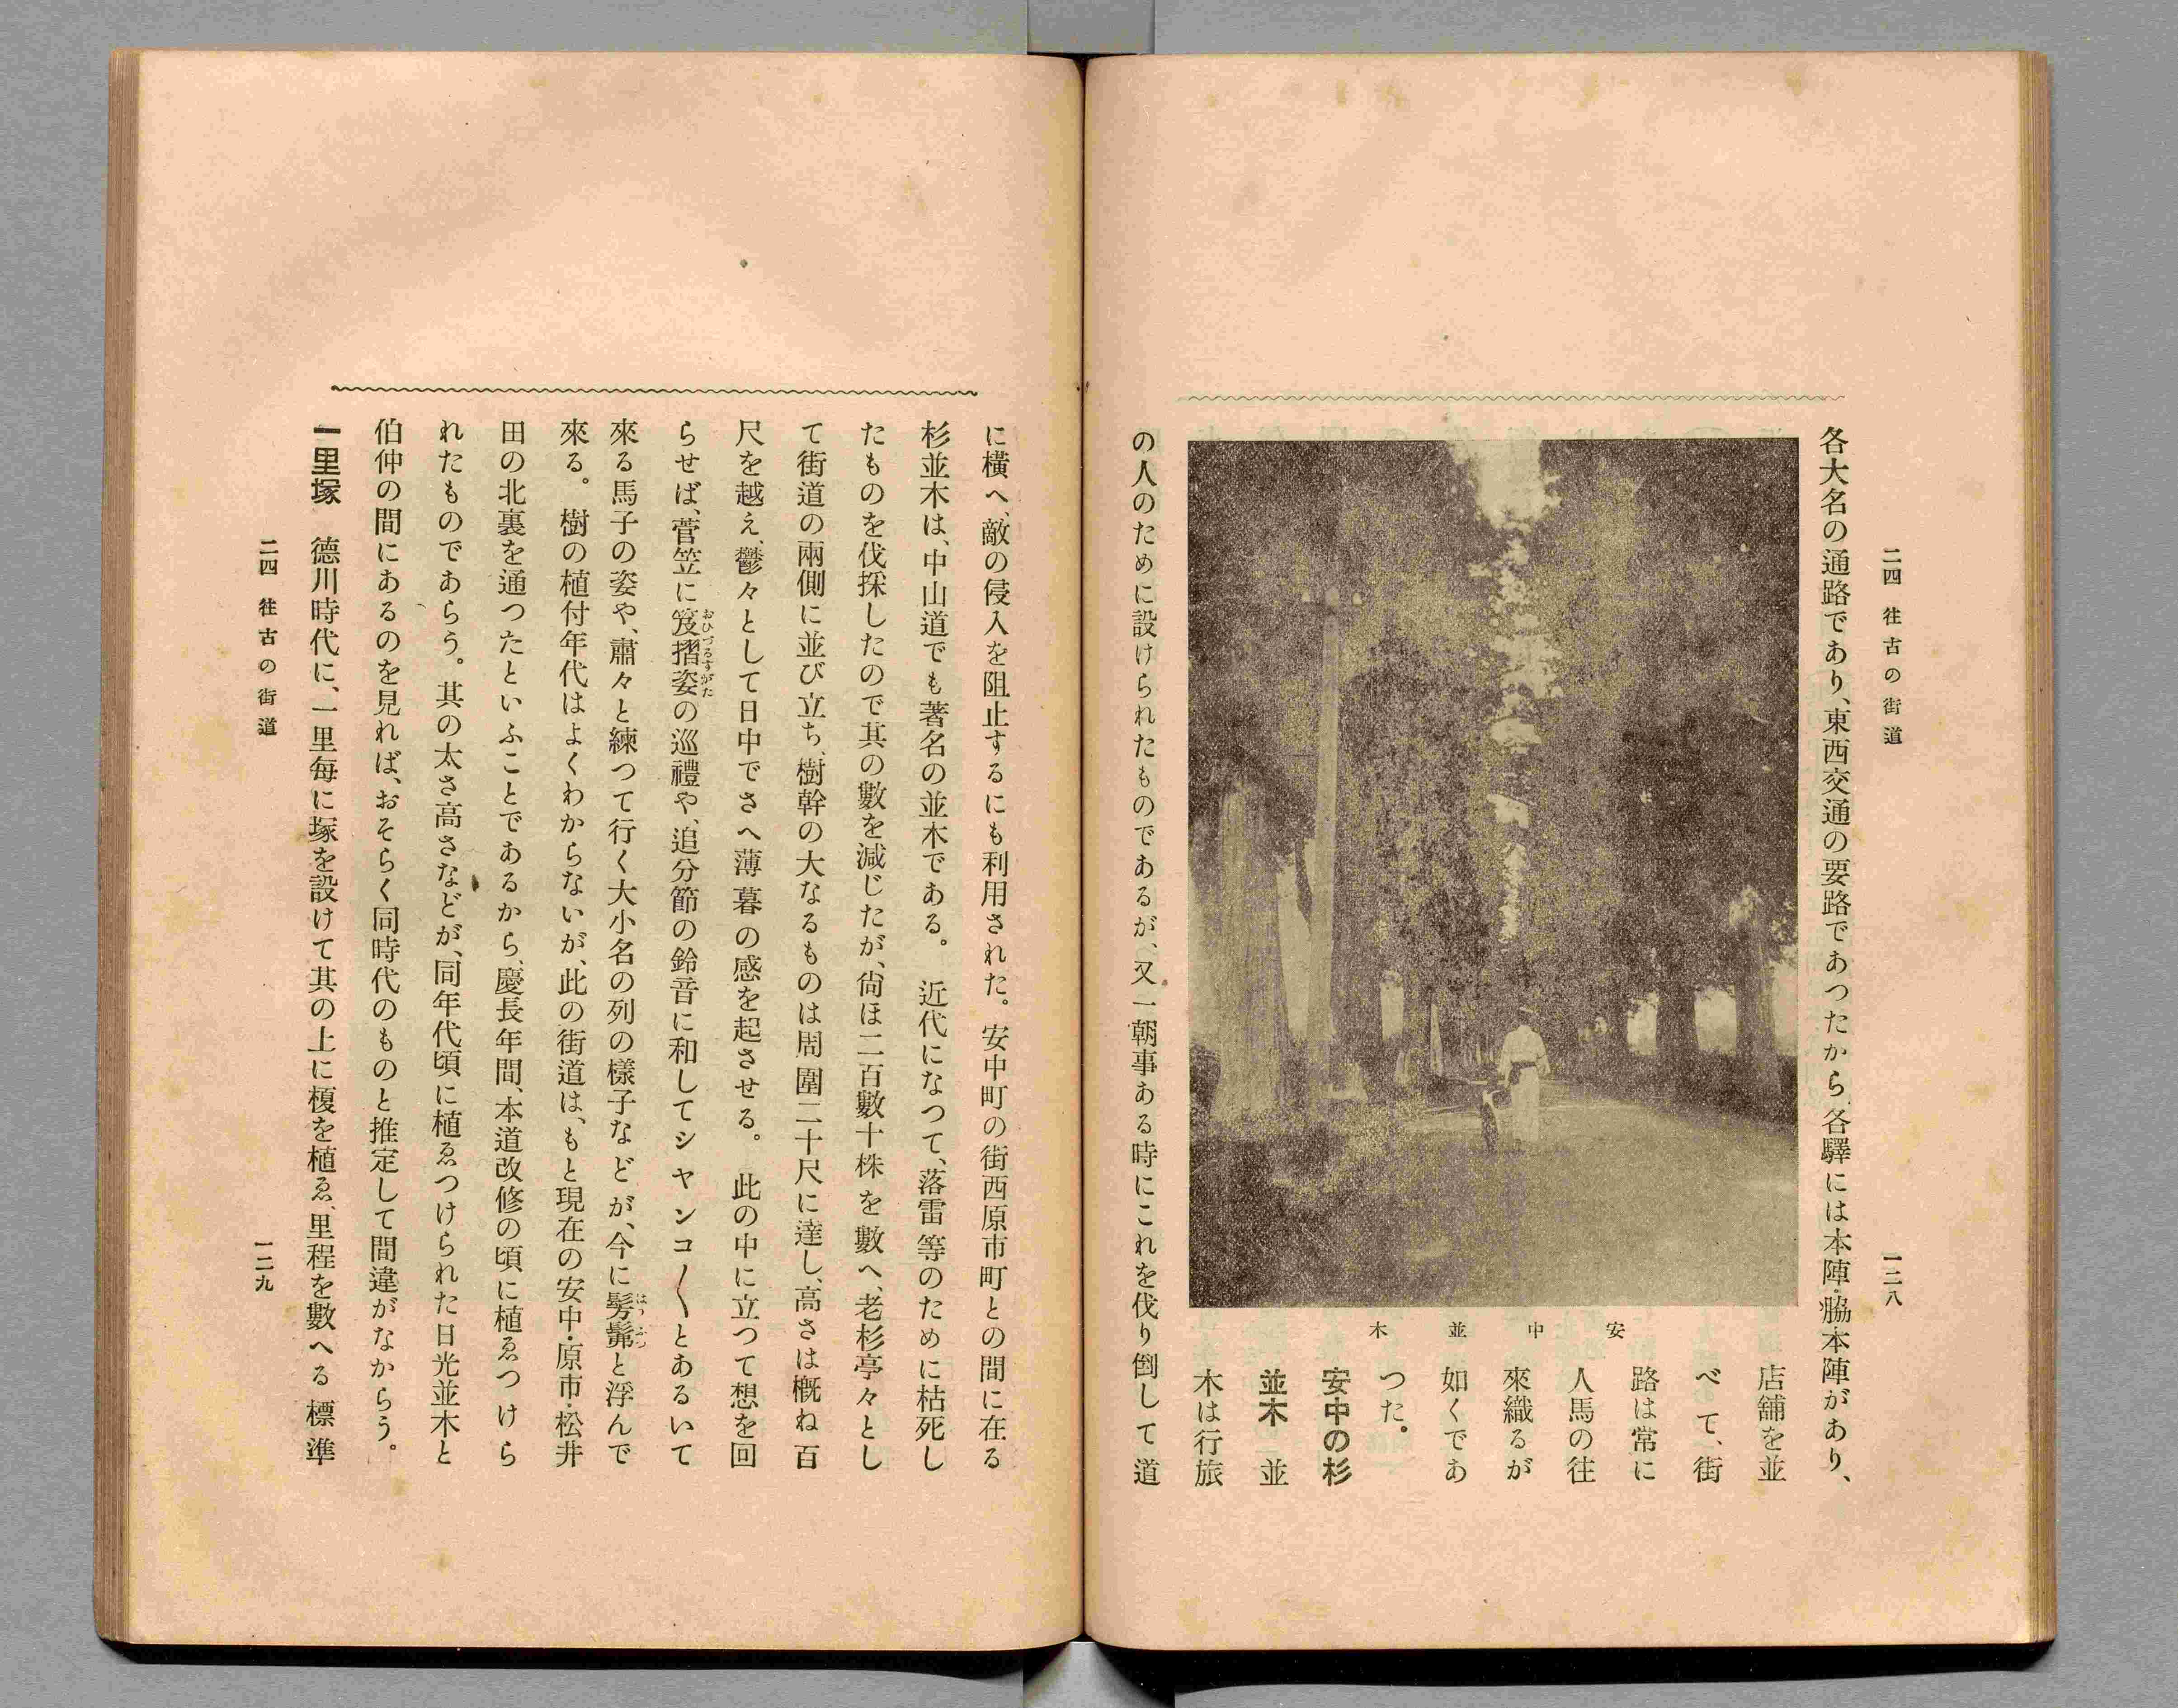 二四 往古の街道
一二八
各大名の通路であり、東西交通の要路であつたから、各驛には本陣・脇本陣があり、
店舖を並
べて、街
路は常に
人馬の往
來織るが
如くであ
つた。
安中の杉
並木 並
木は行旅
安中並木
の人のために設けられたものであるが、又一朝事ある時にこれを伐り倒して道
に橫へ、敵の侵入を阻止するにも利用された。安中町の街西原市町との間に在る
杉並木は、中山道でも著名の並木である。近代になつて、落雷等のために枯死し
たものを伐採したので其の數を減じたが、尙ほ二百數十株を數へ、老杉亭々とし
て街道の兩側に並び立ち、樹幹の大なるものは周圍二十尺に達し、高さは概ね百
尺を越え、鬱々として日中でさへ薄暮の感を起させる。此の中に立つて想を回
らせば、菅笠に笈摺姿の巡禮や、追分節の鈴音に和してシヤンコ〳〵とあるいて
おひづるすがた
來る馬子の姿や、肅々と練つて行く大小名の列の樣子などが、今に髣髴と浮んで
はうふつ
來る。樹の植付年代はよくわからないが、此の街道は、もと現在の安中・原市・松井
田の北裏を通つたといふことであるから、慶長年間、本道改修の頃に植ゑつけら
れたものであらう。其の太さ高さなどが、同年代頃に植ゑつけられた日光並木と
伯仲の間にあるのを見れば、おそらく同時代のものと推定して間違がなからう。
一里塚 德川時代に、一里每に塚を設けて其の上に榎を植ゑ、里程を數へる標準
二四 往古の街道
一二九